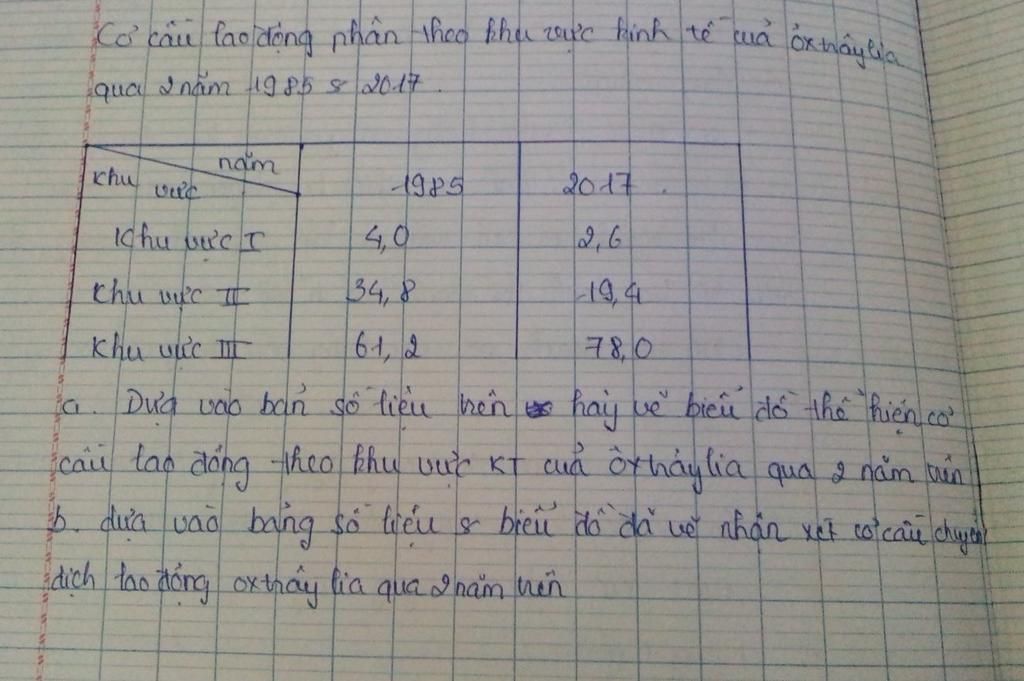 Cơ cấu lao động phân theo khu vực kinh tế cuả ôxtrâylia
qua 2 năm 1985 & 2017.
năm
Khu vực
1985 2017.
Khu vực I 4,0 2,6
Khu vực II 34,8 19,4
Khu vực III 61,2 78,0
a. Dựa vào bản số liệu trên hãy vẽ biểu đồ thể hiện cơ
cấu lao động theo khu vực KT cuả ôxtrâylia qua 2 năm trên
b. dựa vào bảng số liệu & biểu đồ đã vẽ nhận xét cơ cấu chuyển
dịch lao động oxtrâylia qua 2 năm trên